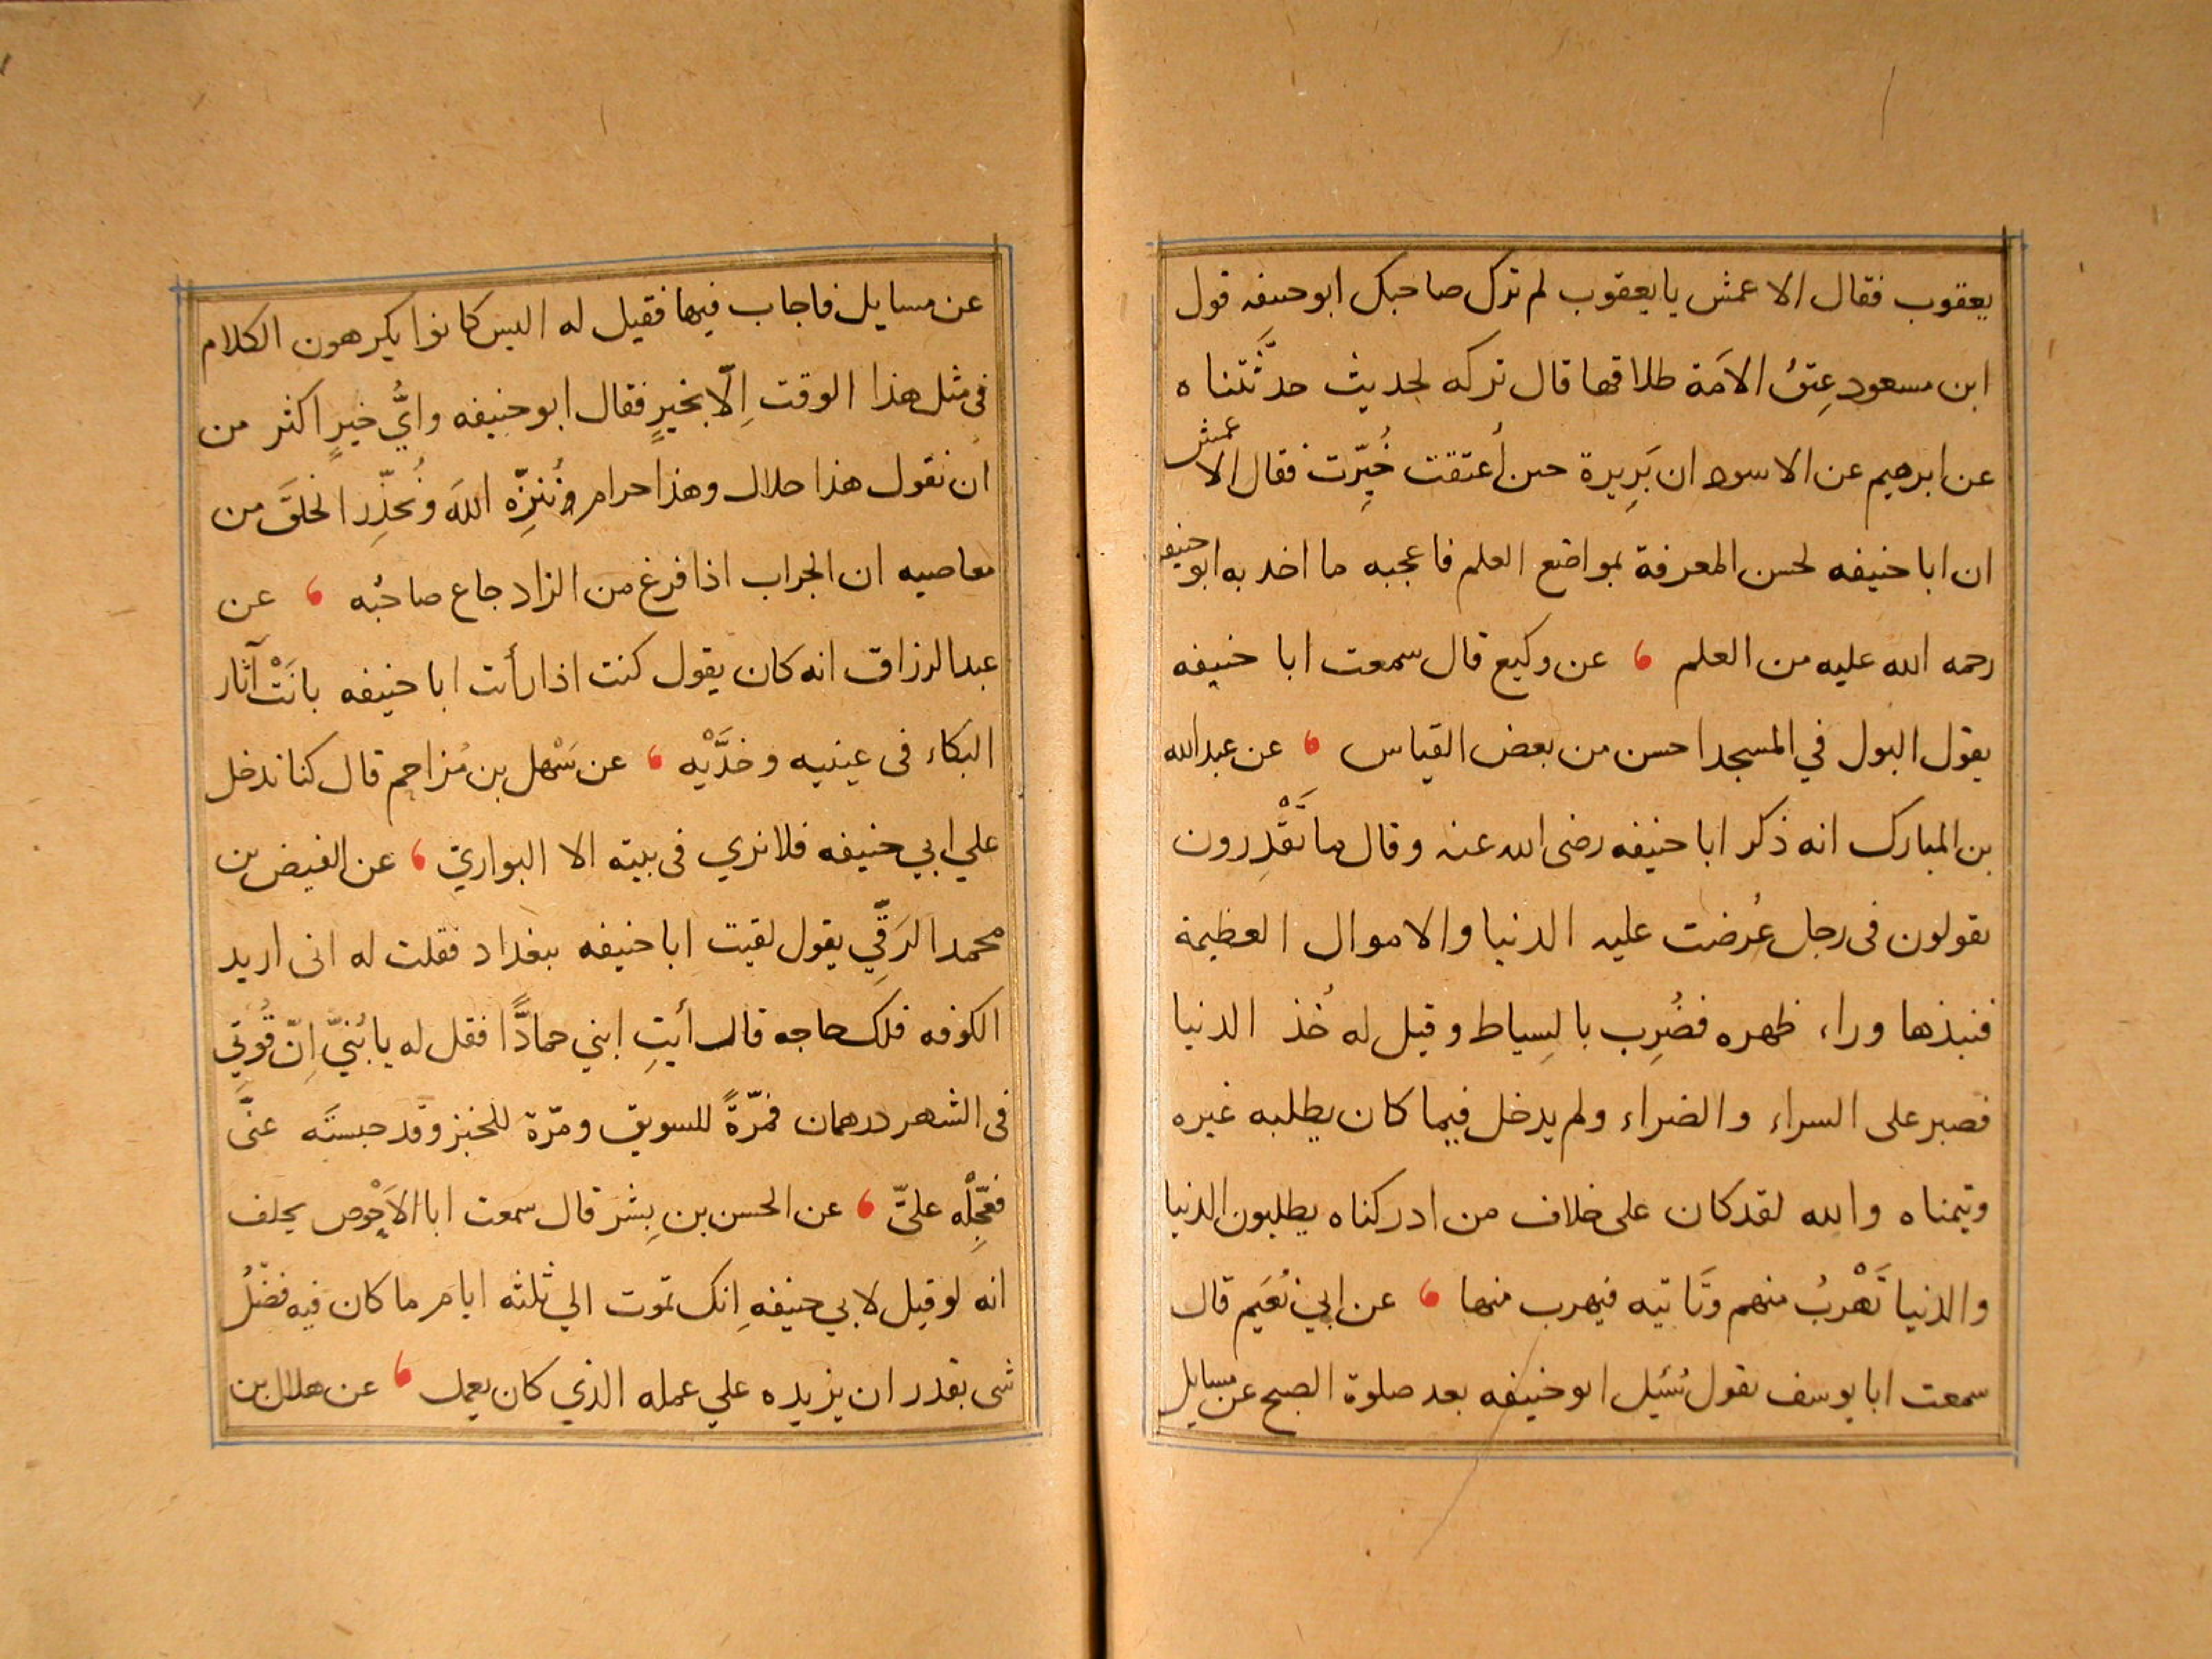 يعقوب فقال الاعمش يا يعقوب لم ترك صاحبك ابو حنيفه قول
ابن مسعود عِتقُ الاَمَة طلاقها قال تركه لحديث حدَّثَتناه
عن ابرهيم عن الاسود ان بَرِيرة حين أُعتقت خُيِّرت فقال الاعمش
ان ابا حنيفه لحسن المعرفة بمواضع العلم فاعجبه ما اخذ به ابو حنيفه
رحمه الله عليه من العلم ، عن وكيع قال سمعت ابا حنيفه
يقول البول في المسجد احسن من بعض القياس ، عن عبد الله
بن المبارك انه ذكر ابا حنيفه رضى الله عنه وقال ما تَقْدِرون
تقولون فى رجل عُرضت عليه الدنيا والاموال العظيمة
فنبذها وراء ظهره فضُرِب بالسِياط وقيل له خُذ الدنيا
فصبر على السراء والضراء ولم يدخل فيما كان يطلبه غيره
ويتمناه والله لقد كان على خلاف من ادركناه يطلبون الدنيا
والدنيا تَهْربُ منهم وتَاتيه فيهرب منها ، عن ابي نُعَيم قال
سمعت ابا يوسف يقول سُئيل ابو حنيفه بعد صلوة الصبح عن مسايل
عن مسايل فاجاب فيها فقيل له اليس كانوا يكرهون الكلام
فى مثل هذا الوقت اِلّا بخيرٍ فقال ابو حنيفه وايُّ خيرٍ اكثر من
ان نقول هذا حلال وهذا حرام ونُنزِّه اللهَ ونُحذِّر الخلقَ من
معاصيه ان الجراب اذا فرغ من الزاد جاع صاحبُه ، عن
عبد الرزاق انه كان يقول كنت اذا رأيت ابا حنيفه بانَتْ آثار
البكاء فى عينيه وخدَّيْه ، عن سَهْل بن مُزاحم قال كنا ندخل
علي ابي حنيفه فلا نري فى بيته الا البواريّ ، عن الفيض بن
محمد الرَقِّي يقول لقيت ابا حنيفه ببغداد فقلت له انى اريد
الكوفه فلك حاجه قال أيتِ ابني حمادًّا فقل له يا بُنيّ اِنّ قُوتي
فى الشهر درهمان فمرّةً للسويق ومرّة للخبز وقد حبستَه عنّى
فعجِّلْه عليّ ، عن الحسن بن بِشر قال سمعت ابا الاَحْوص يحلف
انه لو قيل لابي حنيفهِ انك تموت الي ثلثه ايام ما كان فيه فضْلُ
شى يقدر ان يزيده علي عمله الذي كان يعمل ، عن هلال بن